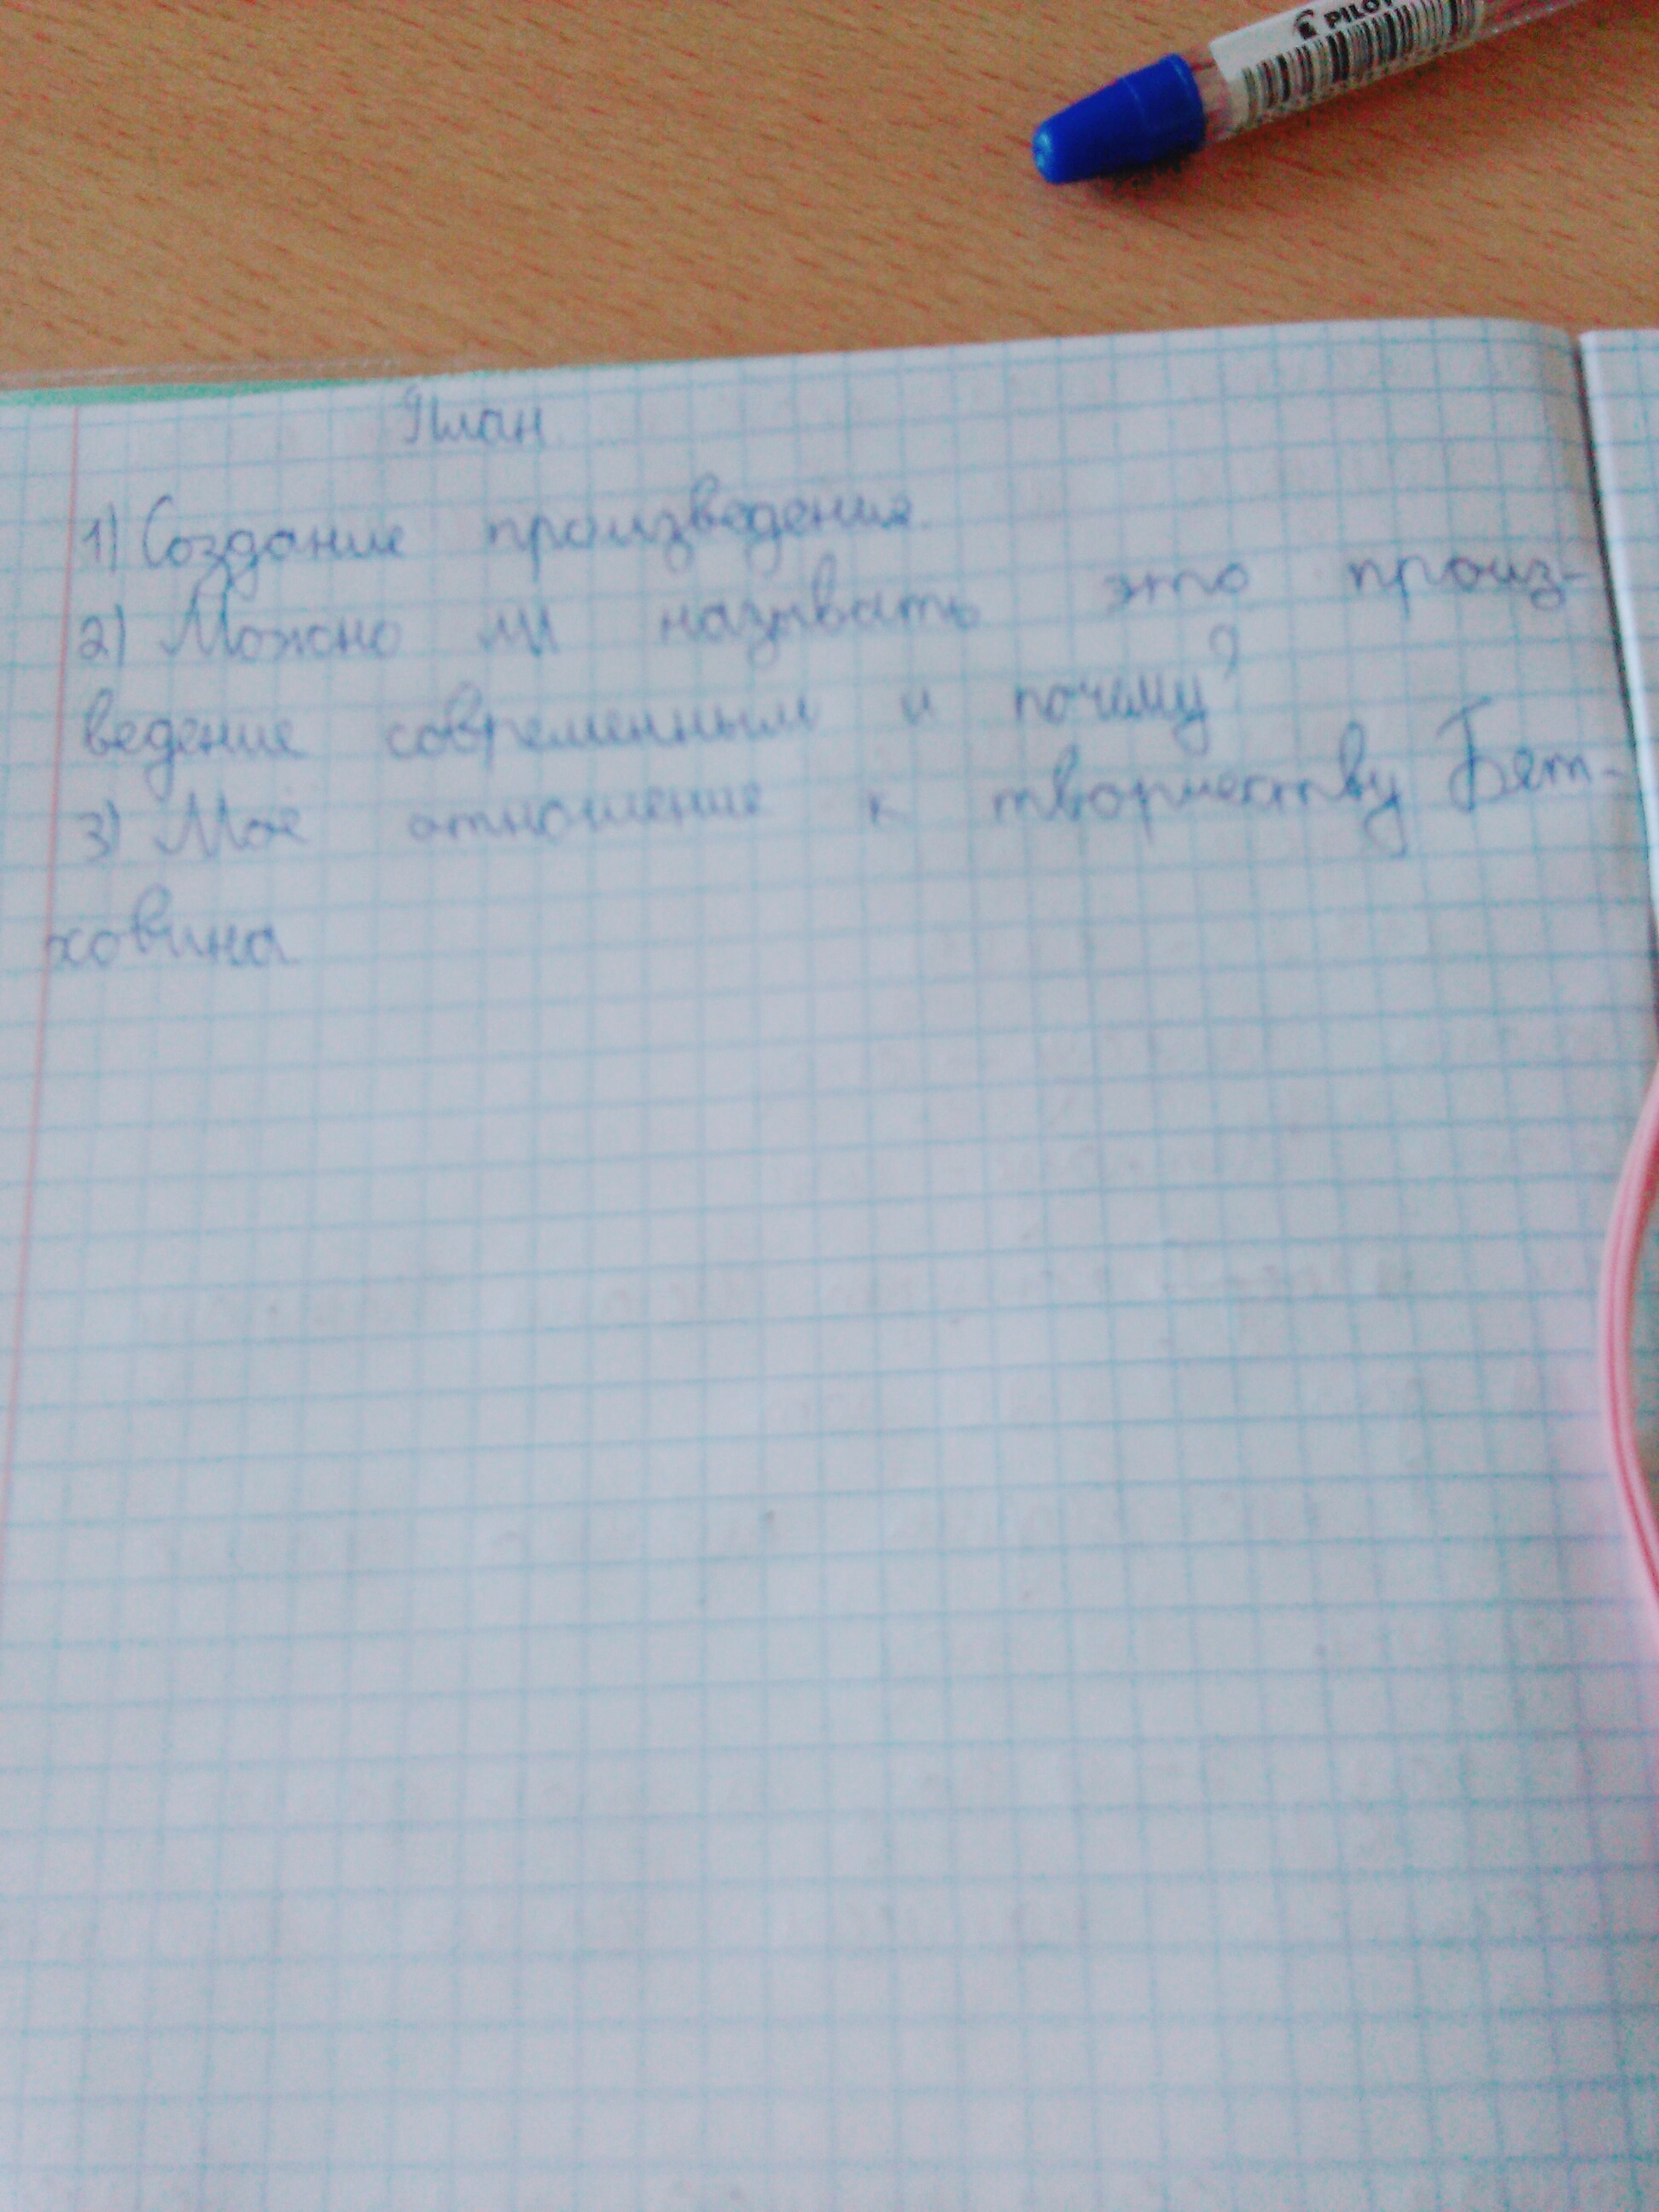 PILOT
План
1) Создание произведения.
2) Можно ли называть это произ-
ведение современным и почему?
3) Моё отношение к творчеству Бет-
ховина